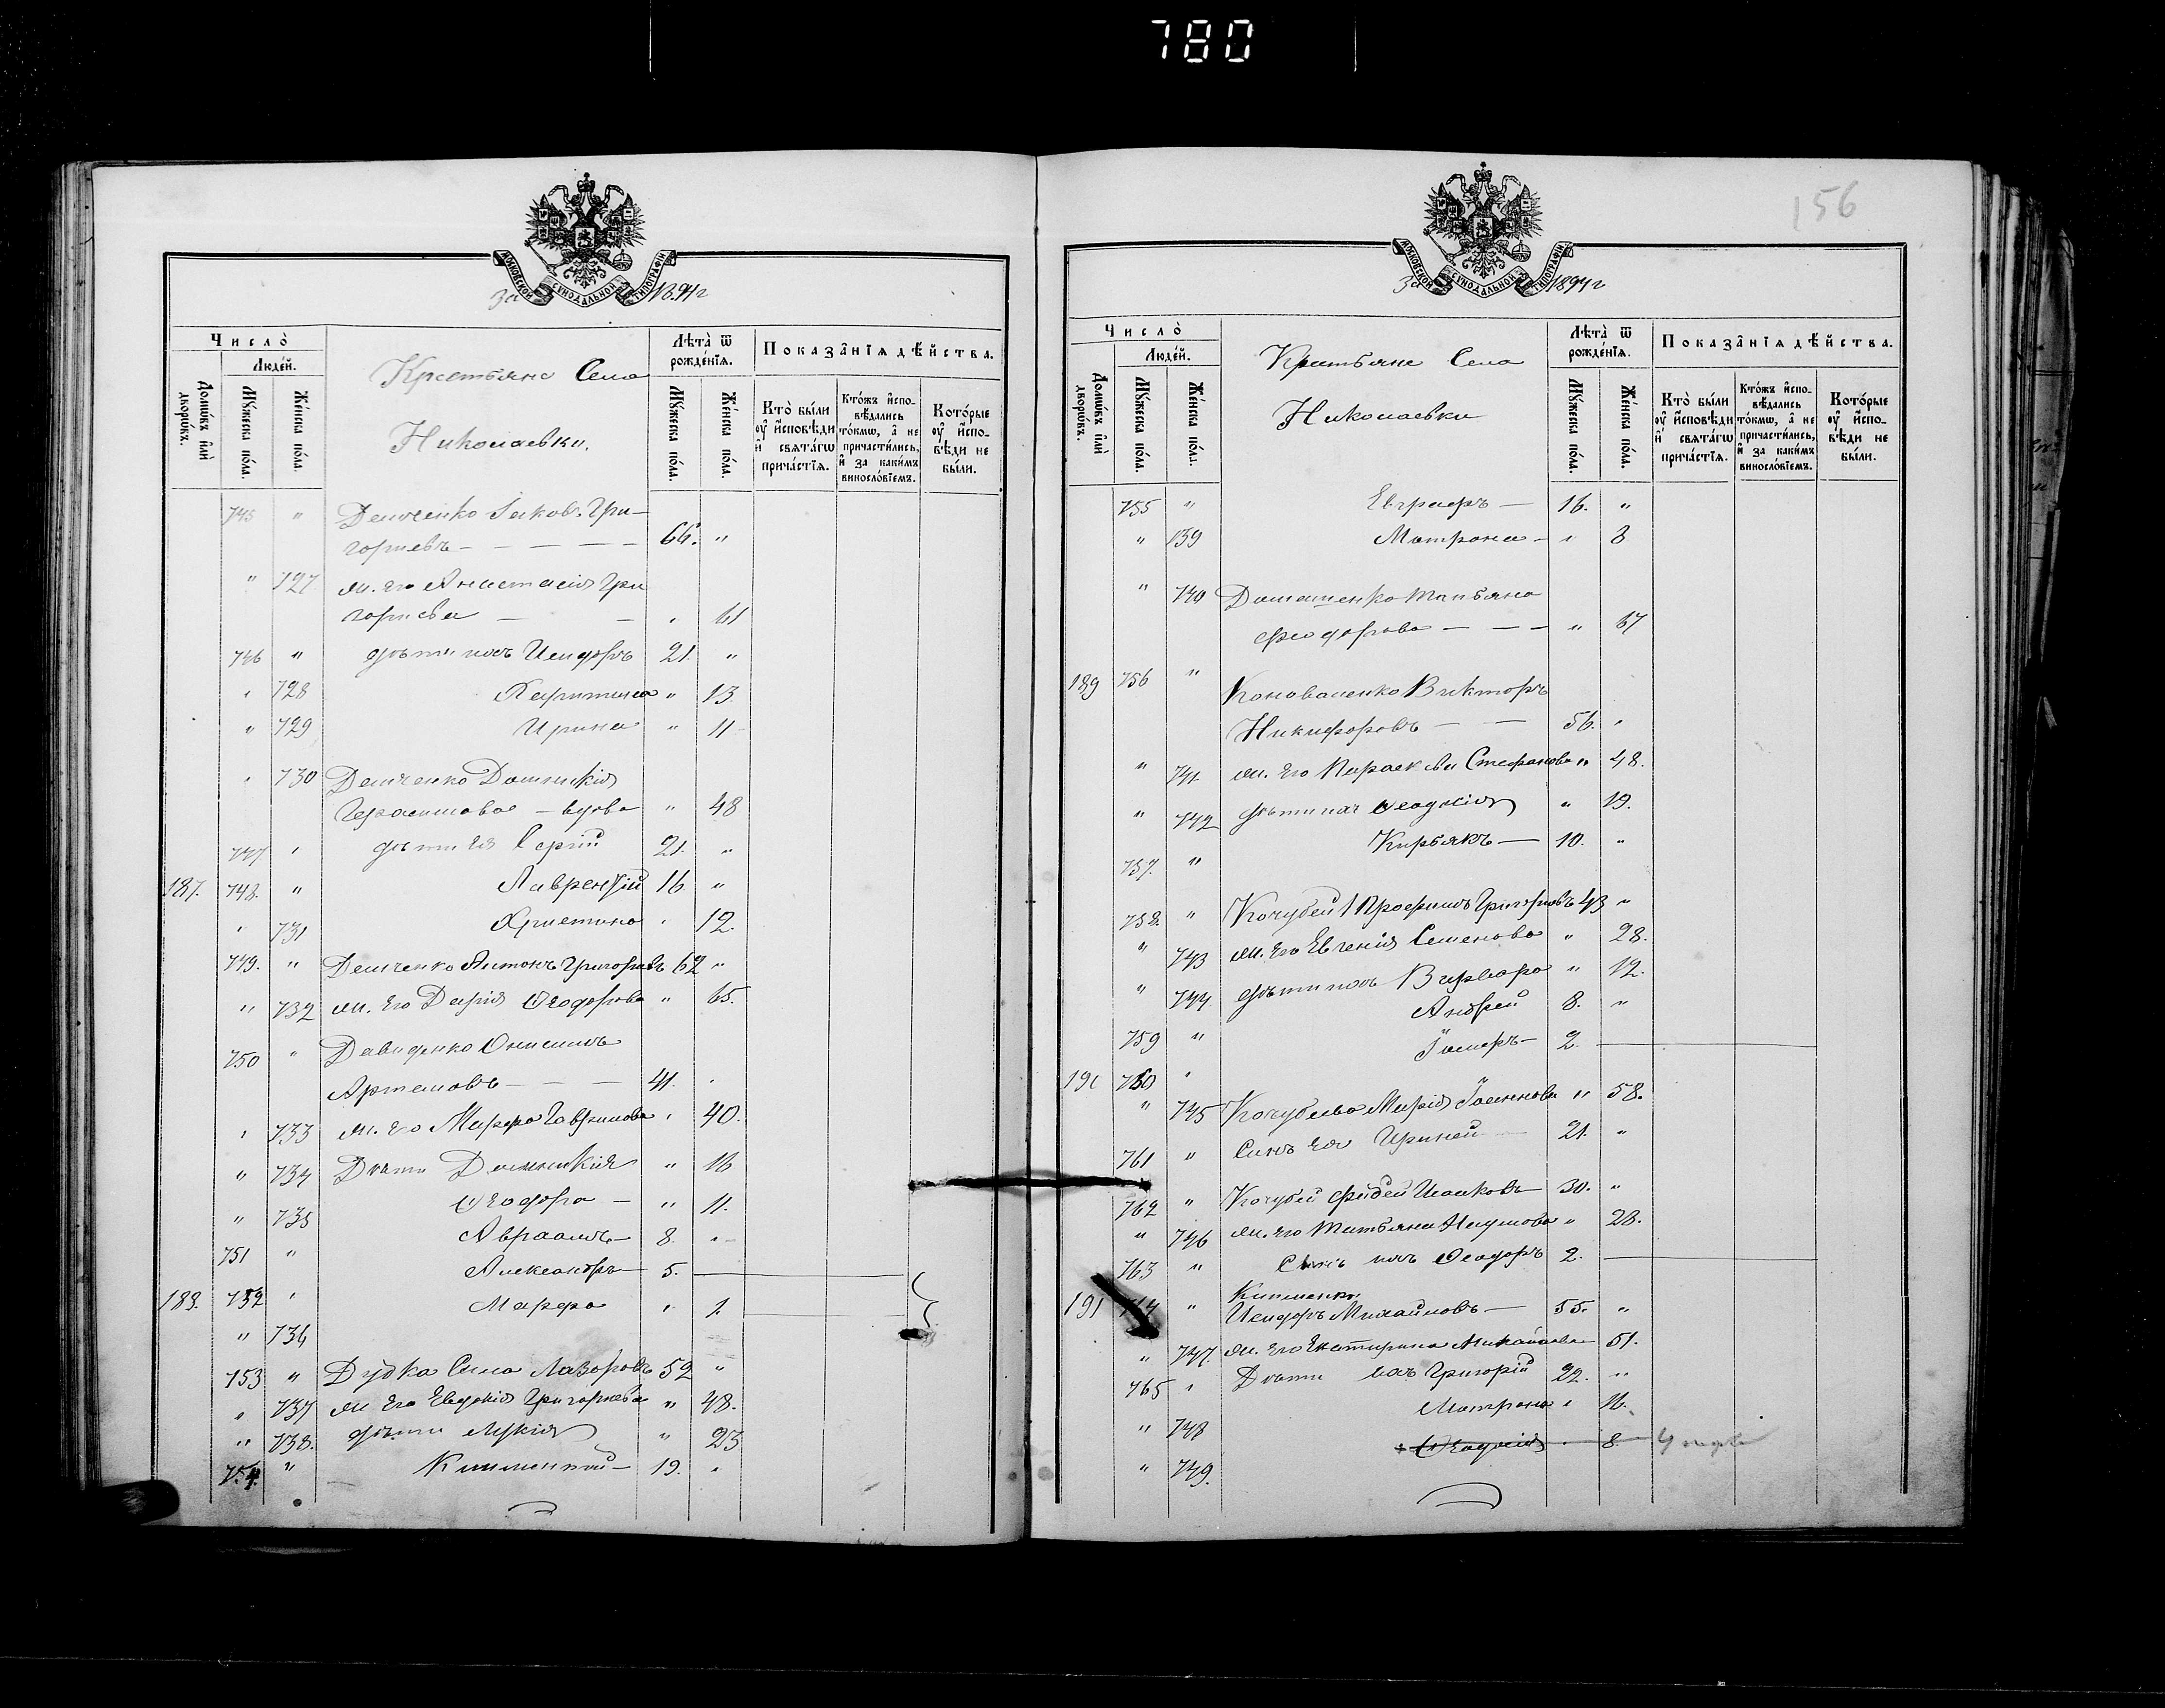 780
156
МОСКОВСКОЙ СѴНОДАЛЬНОЙ ТИПОГРАФІИ
За 1894 г
Число̀
Люде́й.
Домѡ́въ и҆лѝ дворѡ́въ.
Мꙋ́жеска по́ла.
Же́нска по́ла.
Крестьяне Села
Николаевки.
Лѣта̀ ѿ рожде́нїѧ.
Мꙋ́жеска по́ла.
Же́нска по́ла.
Показа̑нїѧ дѣ́йства.
Кто̀ бы́ли оу҆ и҆сповѣди и҆ свѧта́гѡ прича́стїѧ.
Кто́жъ и҆спо- вѣ́дались то́кмѡ, а҆ не причасти́лись, и҆ за каки́мъ винослові́емъ.
Кото́рые оу҆ и҆спо- вѣди не бы́ли.
745 " Демченко Іаков. Гри-
горіевъ - - - - - 66. "
" 727 ж. его Анастасія Гри
горіева - - " 61
746 " дѣти ихъ Исидоръ 21. "
" 728 Харитина " 13
" 729 Ирина " 11
" 730 Демченко Домникія
Герасимова - вдова " 48
747 " дѣти ея Сергій 21. "
187. 748. " Лаврентій 16. "
" 731 Христина " 12.
749. " Демченко Антонъ Григорьевъ 62 "
" 732 ж. его Дарія Ѳеодорова " 65.
750 " Давиденко Онисимъ
Артемовъ - - - 41. "
" 733 ж. его Марфа Гаврилова " 40.
" 734 Дѣти Домникія " 16
" 735 Ѳеодора - " 11.
751 " Авраамъ 8. "
188. 752 " Александръ 5.
" 736 Марфа " 1.
753 " Дудка Сила Лазоровъ 52 "
" 737 ж. его Евдокія Григорьева " 48.
" 738. дѣти Лукія " 23
754. " Климентій - 19. "
МОСКОВСКОЙ СѴНОДАЛЬНОЙ ТИПОГРАФІИ
За 1894 г
Число̀
Люде́й.
Домѡ́въ и҆лѝ дворѡ́въ.
Мꙋ́жеска по́ла.
Же́нска по́ла.
Крестьяне Села
Николаевки
Лѣта̀ ѿ рожде́нїѧ.
Мꙋ́жеска по́ла.
Же́нска по́ла.
Показа̑нїѧ дѣ́йства.
Кто̀ бы́ли оу҆ и҆сповѣди и҆ свѧта́гѡ прича́стїѧ.
Кто́жъ и҆спо- вѣ́дались то́кмѡ, а҆ не причасти́лись, и҆ за каки́мъ винослові́емъ.
Кото́рые оу҆ и҆спо- вѣди не бы́ли.
755 " Евграфъ - 16. "
" 739 Матрона - " 8
" 740 Домашенко Татьяна
Феодорова - - - " 67
189 756 " Коноваленко Викторъ
Никифоровъ - - 56. "
" 741. ж. его Параскева Стефанова " 48.
" 742 дѣти ихъ Ѳеодосія " 19.
757. " Кирьякъ - 10. "
758. " Кочубей Трофимъ Григорьевъ 43 "
" 743 ж. его Евгенія Семенова " 28.
" 744 дѣти ихъ Варвара " 12.
759 " Андрей 8. "
190 760 " 2.
" 745 Кочубеева Марія Іоаннова " 58.
761 " Сынъ ея Ириней 21. "
762 " Кочубей Фадей Исаковъ 30. "
" 746 ж. его Татьяна Наумова " 28.
763 " Сынъ ихъ Ѳеодоръ 2.
Клименко
191 764 " Исидоръ Михайловъ - 55. "
" 747. ж. его Екатерина Михайлова 51.
765 " Дѣти ихъ Григорій 22. "
" 748 Матрона " 16.
" 749. + Ѳеодосія " 8.